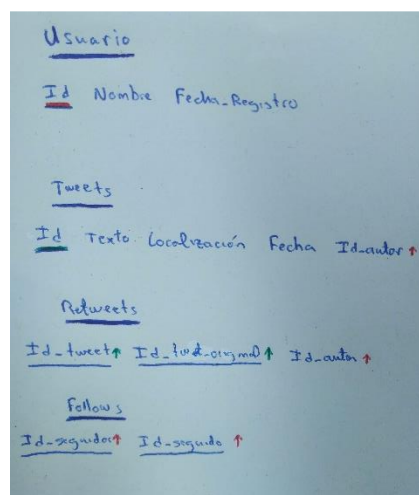 Usuario
Id Nombre Fecha_Registro
Tweets
Id Texto Localización Fecha Id_autor ↑
Retweets
Id_tweet ↑ Id_tweet_original ↑ Id_autor ↑
Follows
Id_seguidor ↑ Id_seguido ↑